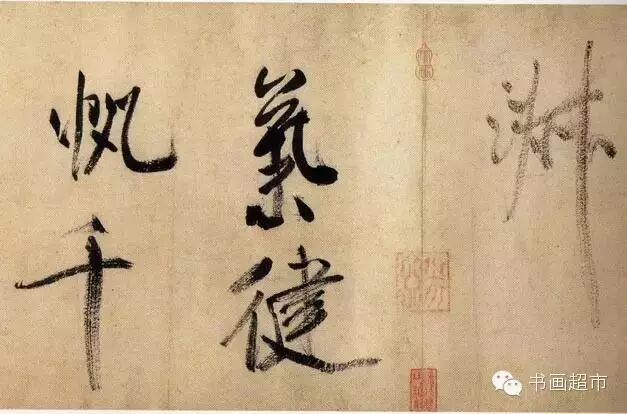 淑
氣健
帆千
书画超市